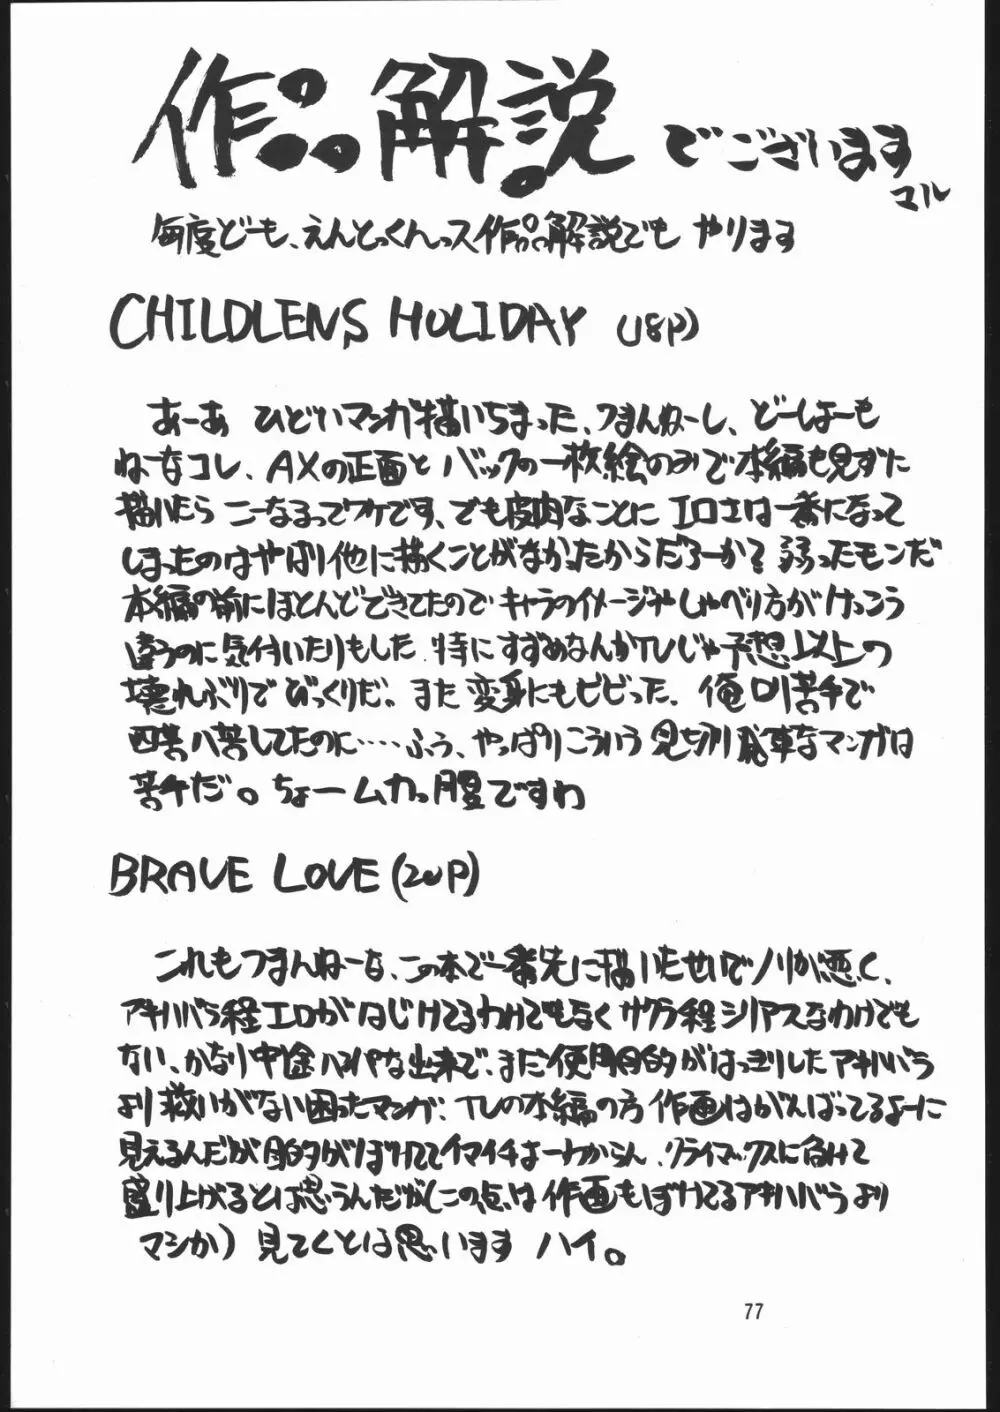 作品解説でございます
マル
毎度どーも、えんとっくんっス作品解説でも やります
CHILDLENS HOLIDAY (18P)
あーあ ひどいマンガ描いちまった、つまんねーし、どーしょーも
ねーなコレ、AXの正面とバックの一枚絵のみで本編も見ずに
描いたら こーなるってワケです、でも皮肉なことに エロさは一番になって
しまったのはやはり他に描くことがなかったからだろーか?弱ったモンだ
本編の前にほとんどできてたので キャラのイメージやしゃべり方がけっこう
違うのに気付いたりもした 特にすずめなんかTVじゃ予想以上の
壊れぶりでびっくりだ。また変身にもビビった。俺ロリ苦手で
四苦八苦してたのに……ふう、やっぱりこういう 見切り発車なマンガは
苦手だ。ちょームカっ腹ですわ
BRAVE LOVE (20P)
これもつまんねーな、この本で一番先に描いたせいでノリが悪く、
アキハバラ程エロがはじけてるわけでもなく サクラ程シリアスなわけでも
ない、かなり中途ハンパな出来で、まだ使用目的がはっきりしたアキハバラ
より救いがない困ったマンガ、TVの本編の方 作画はがんばってるよーに
見えるんだが目的がぼけててイマイチよーわからん、クライマックスに向けて
盛り上げるとは思うんだが(この点は 作画もぼけてるアキハバラより
マシか)見てくとは思います ハイ。
77